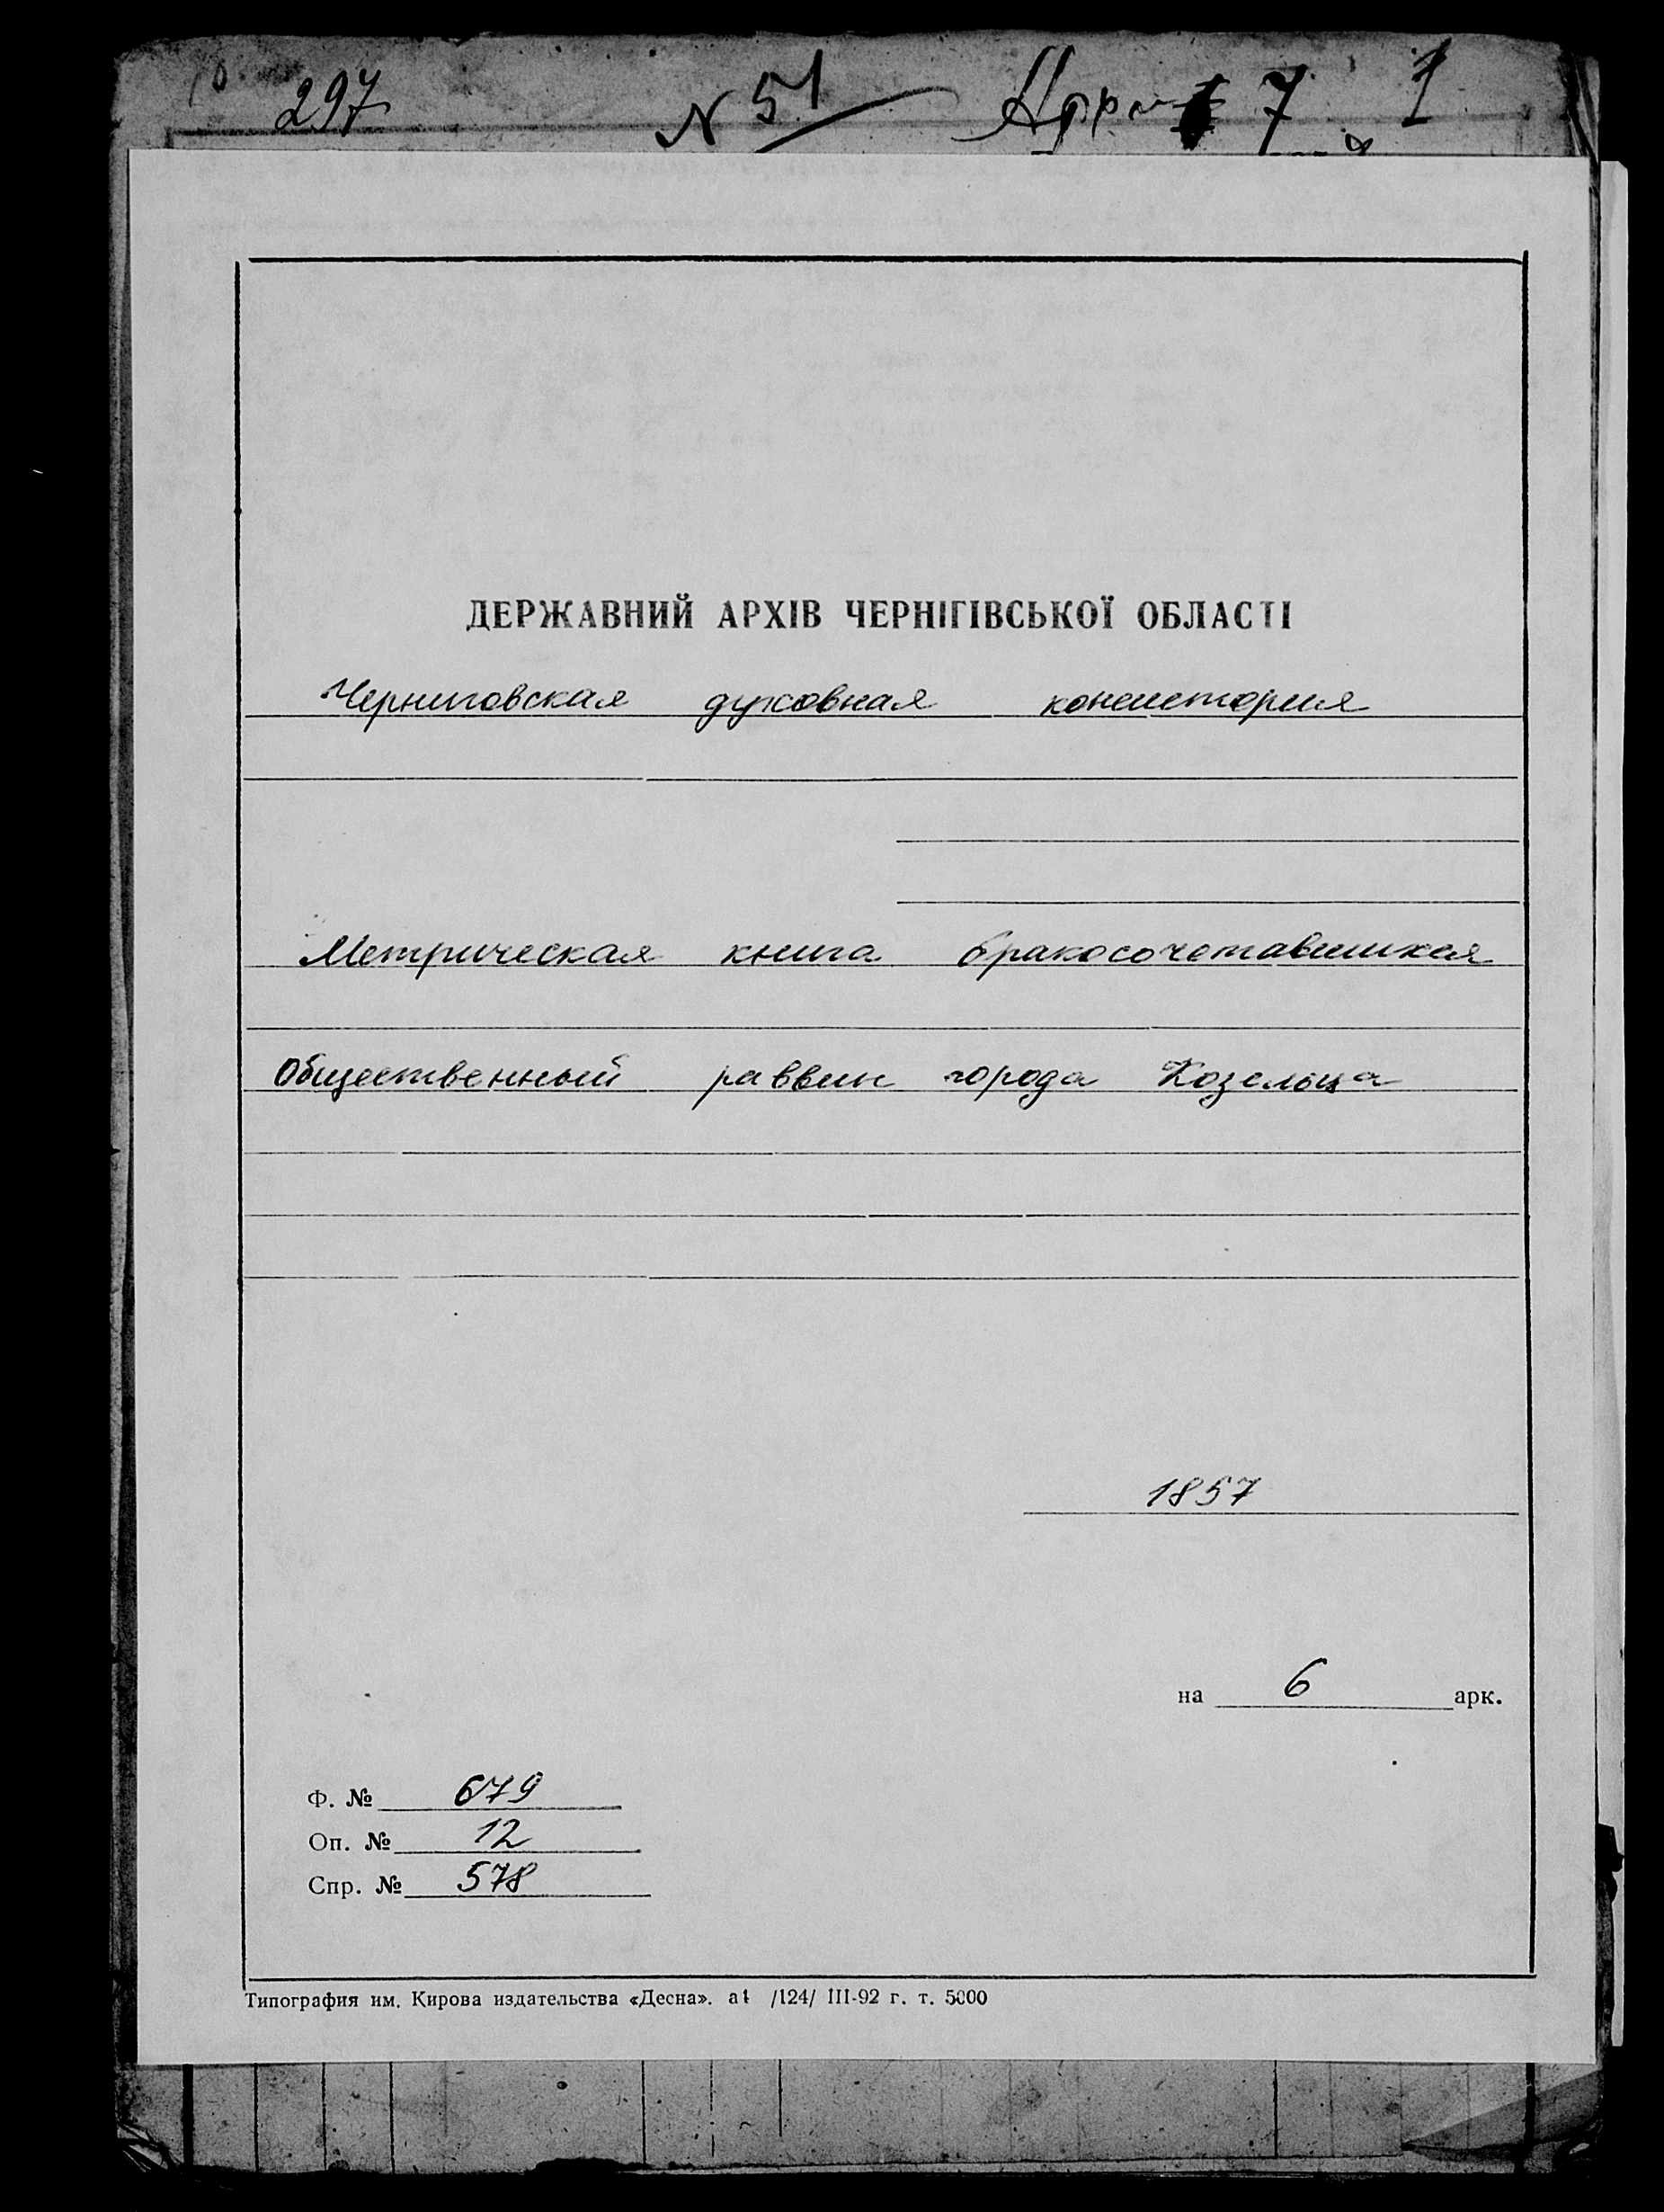 297 N 51 7 1
ДЕРЖАВНИЙ АРХІВ ЧЕРНІГІВСЬКОЇ ОБЛАСТІ
Черниговская духовная консистория
Метрическая книга бракосочетавшихся
Общественный раввин города Козельца
1857
на 6 арк.
Ф. № 679
Оп. № 12
Спр. № 578
Типография им. Кирова издательства «Десна». /124/ III-92 г. т. 5000